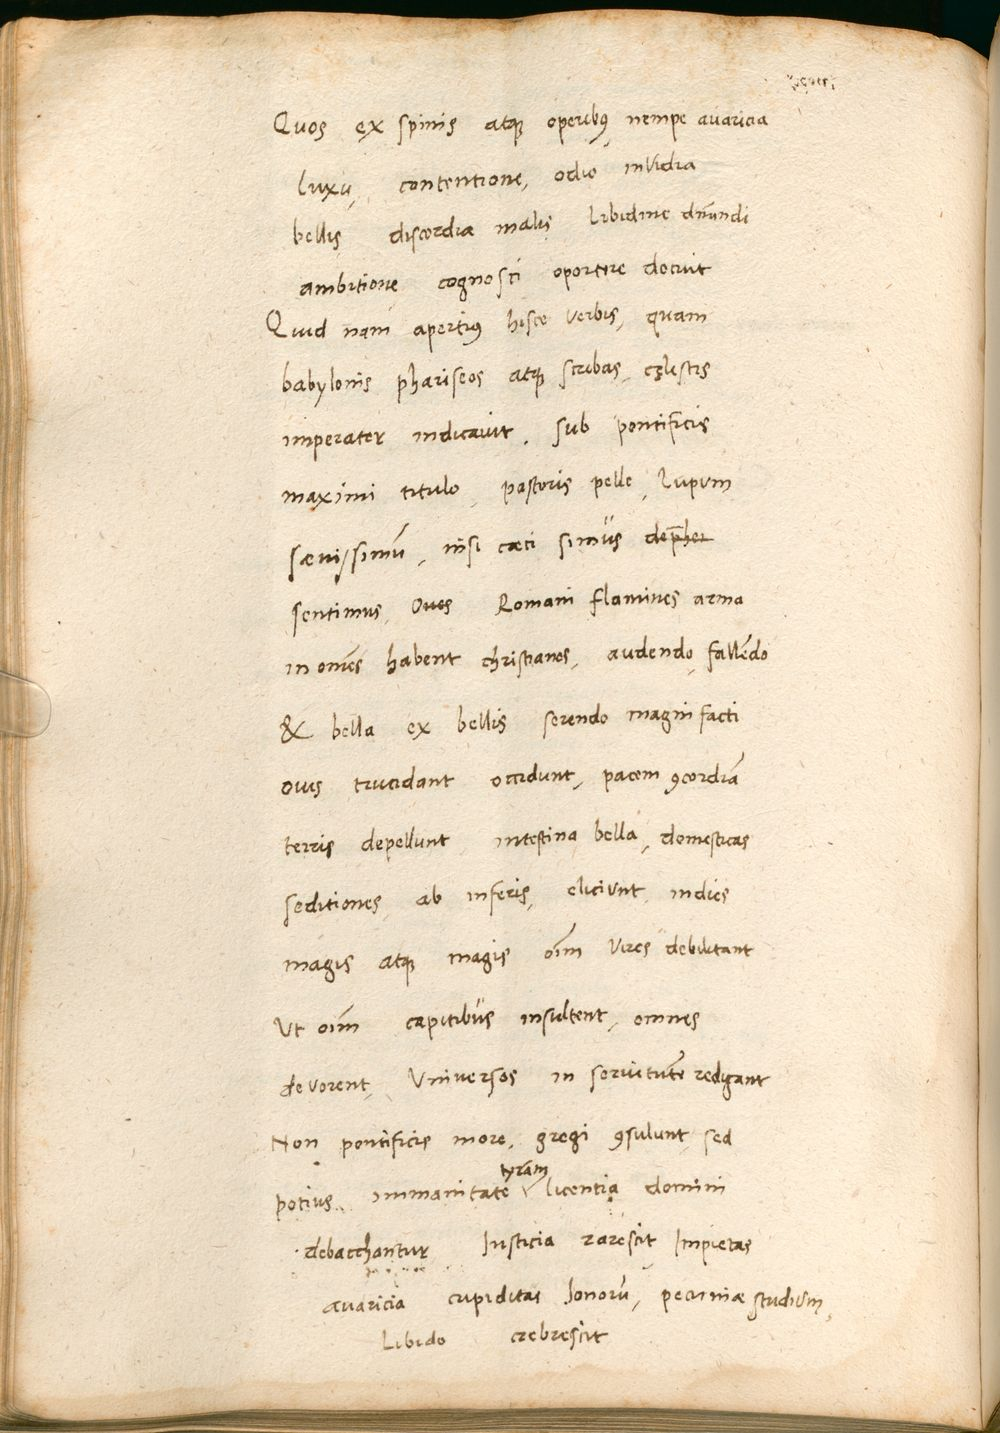 Quos ex spinis atqꝫ operibꝰ nempe auaricia
luxu, contentione, odio inVidia
bellis discordia malis libidine dn̄andi
ambitione cognosci oportere docuit
Quid nam apertiꝰ hisce Verbis, quam
babylonis phariseos atqꝫ scribas, cęlestis
imperator indicauit. sub pontificis
maximi titulo, pastoris pelle, lupum
sæuissimū, nisi cæci simus
sentimus, Oues Romani flamines arma
in om̄es habent christianos, audendo, fallēdo
& bella ex bellis serendo magni facti
ouis trucidant occidunt, pacem ꝯcordiā
terris depellunt, intestina bella, domesticas
seditiones, ab inferis, eliciunt, indies
magis atqꝫ magis oīm Vires debilitant
Ut oīm capitibus insultent, omnes
deVorent, Vniversos in seruitutē redigant
Non pontificis more, gregi ꝯsulunt, sed
tyrām
potius immanitate licentia domini
debacchantur Iusticia rarescit Impietas
auaricia cupiditas honorū, pecuniæ studium,
Libido crebrescit